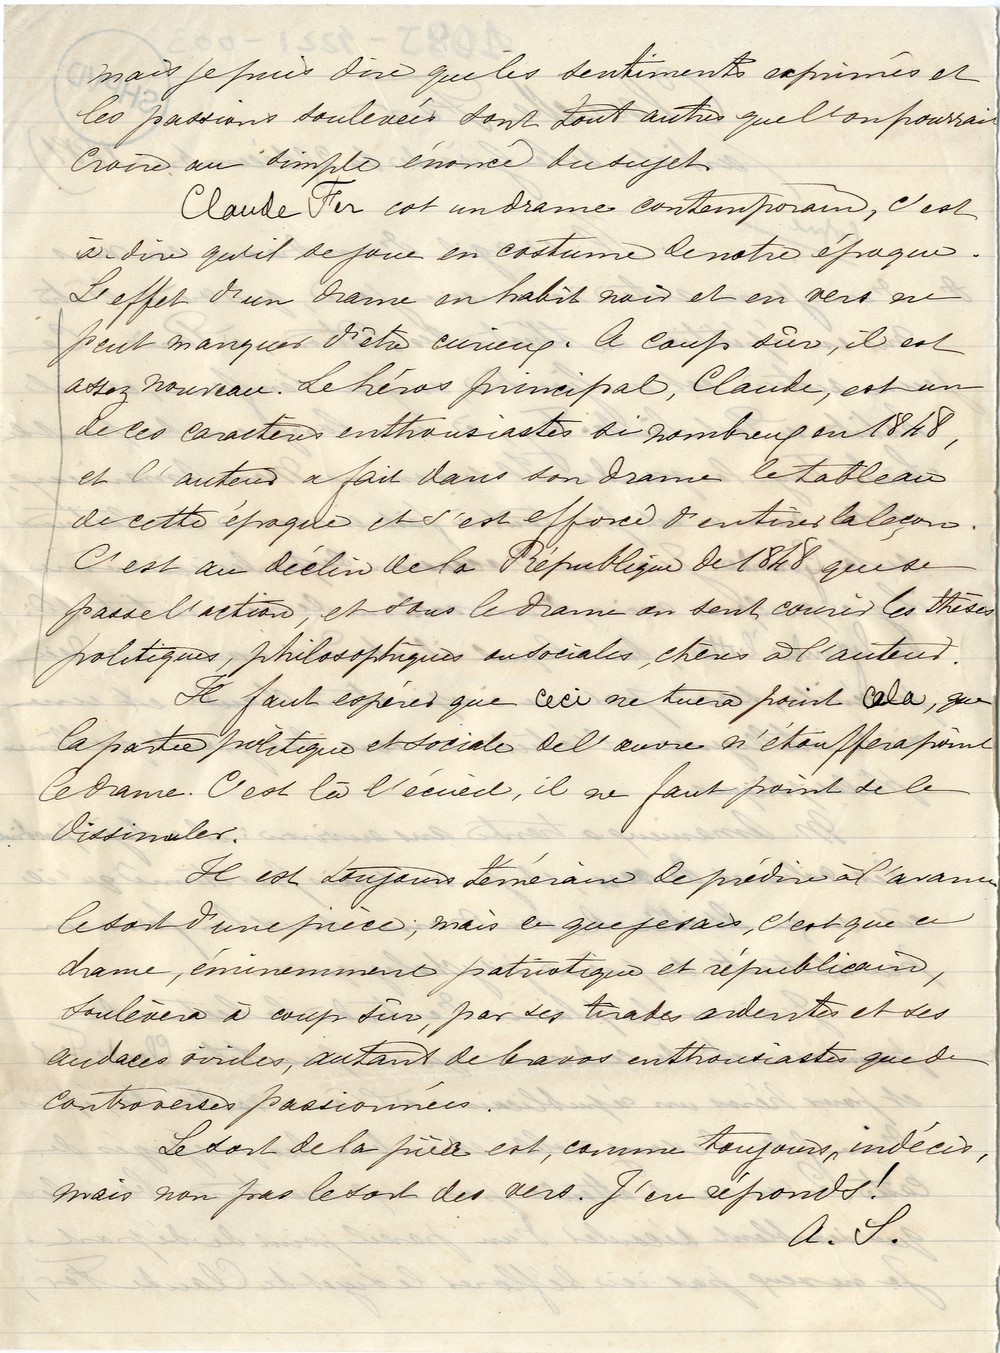 mais je puis dire que les sentiments exprimés et
les passions soulevées sont tout autres que l'on pourrait
croire au simple énoncé du sujet.
Claude Fer est un drame contemporain, c'est
à-dire qu'il se joue en costume de notre époque.
L'effet d'un drame en habit noir et en vers ne
peut manquer d'être curieux. A coup sûr, il est
assez nouveau. Le héros principal, Claude, est un
de ces caractères enthousiastes si nombreux en 1848,
et l'auteur a fait dans son drame le tableau
de cette époque et s'est efforcé d'en tirer la leçon.
C'est au déclin de la République de 1848 que se
passe l'action, et sous le drame on sent courir les thèses
politiques, philosophiques ou sociales, chères à l'auteur.
Il faut espérer que ceci ne tuera point cela, que
la partie politique et sociale de l'œuvre n'étouffera point
le drame. C'est là l'écueil, il ne faut point se le
dissimuler.
Il est toujours téméraire de prédire à l'avance
le sort d'une pièce; mais ce que je sais, c'est que ce
drame, éminemment patriotique et républicain,
soulèvera à coup sûr, par ses tirades ardentes et ses
audaces viriles, autant de bravos enthousiastes que de
controverses passionnées.
Le sort de la pièce est, comme toujours, indécis,
mais non pas le sort des vers. J'en réponds!
A. S.